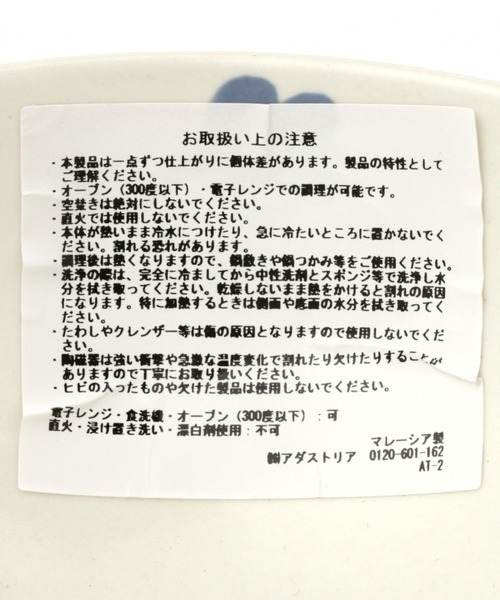 お取扱い上の注意
・本製品は一点ずつ仕上がりに個体差があります。製品の特性として
ご理解ください。
・オーブン（300度以下）・電子レンジでの調理が可能です。
・空焚きは絶対にしないでください。
・直火では使用しないでください。
・本体が熱いまま冷水につけたり、急に冷たいところに置かないでく
ださい。割れる恐れがあります。
・調理後は熱くなりますので、鍋敷きや鍋つかみ等をご使用ください。
・洗浄の際は、完全に冷ましてから中性洗剤とスポンジ等で洗浄し水
分を拭き取ってください。乾燥しないまま熱をかけると割れの原因
になります。特に加熱するときは側面や底面の水分を拭き取ってく
ださい。
・たわしやクレンザー等は傷の原因となりますので使用しないでくだ
さい。
・陶磁器は強い衝撃や急激な温度変化で割れたり欠けたりすることが
ありますので丁寧にお取り扱いください。
・ヒビの入ったものや欠けた製品は使用しないでください。
電子レンジ・食洗機・オーブン（300度以下）：可
直火・浸け置き洗い・漂白剤使用：不可
マレーシア製
㈱アダストリア 0120-601-162
AT-2